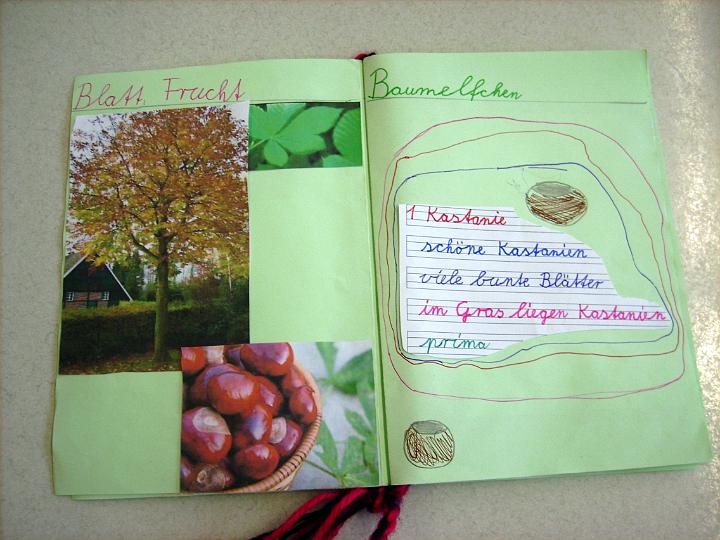 Blatt, Frucht
Baumelfchen
1 Kastanie
schöne Kastanien
viele bunte Blätter
im Gras liegen Kastanien
prima